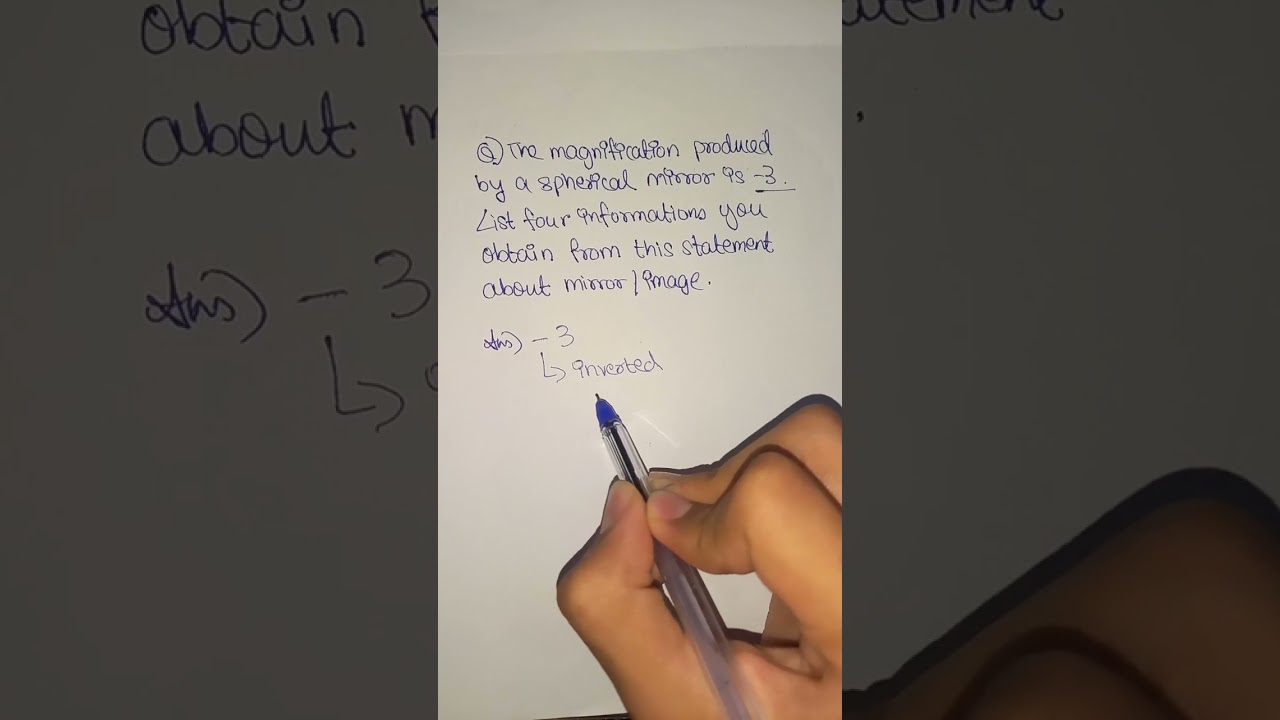 Q) The magnification produced
by a spherical mirror is -3.
List four informations you
obtain from this statement
about mirror/image.
Ans) - 3
↳ inverted